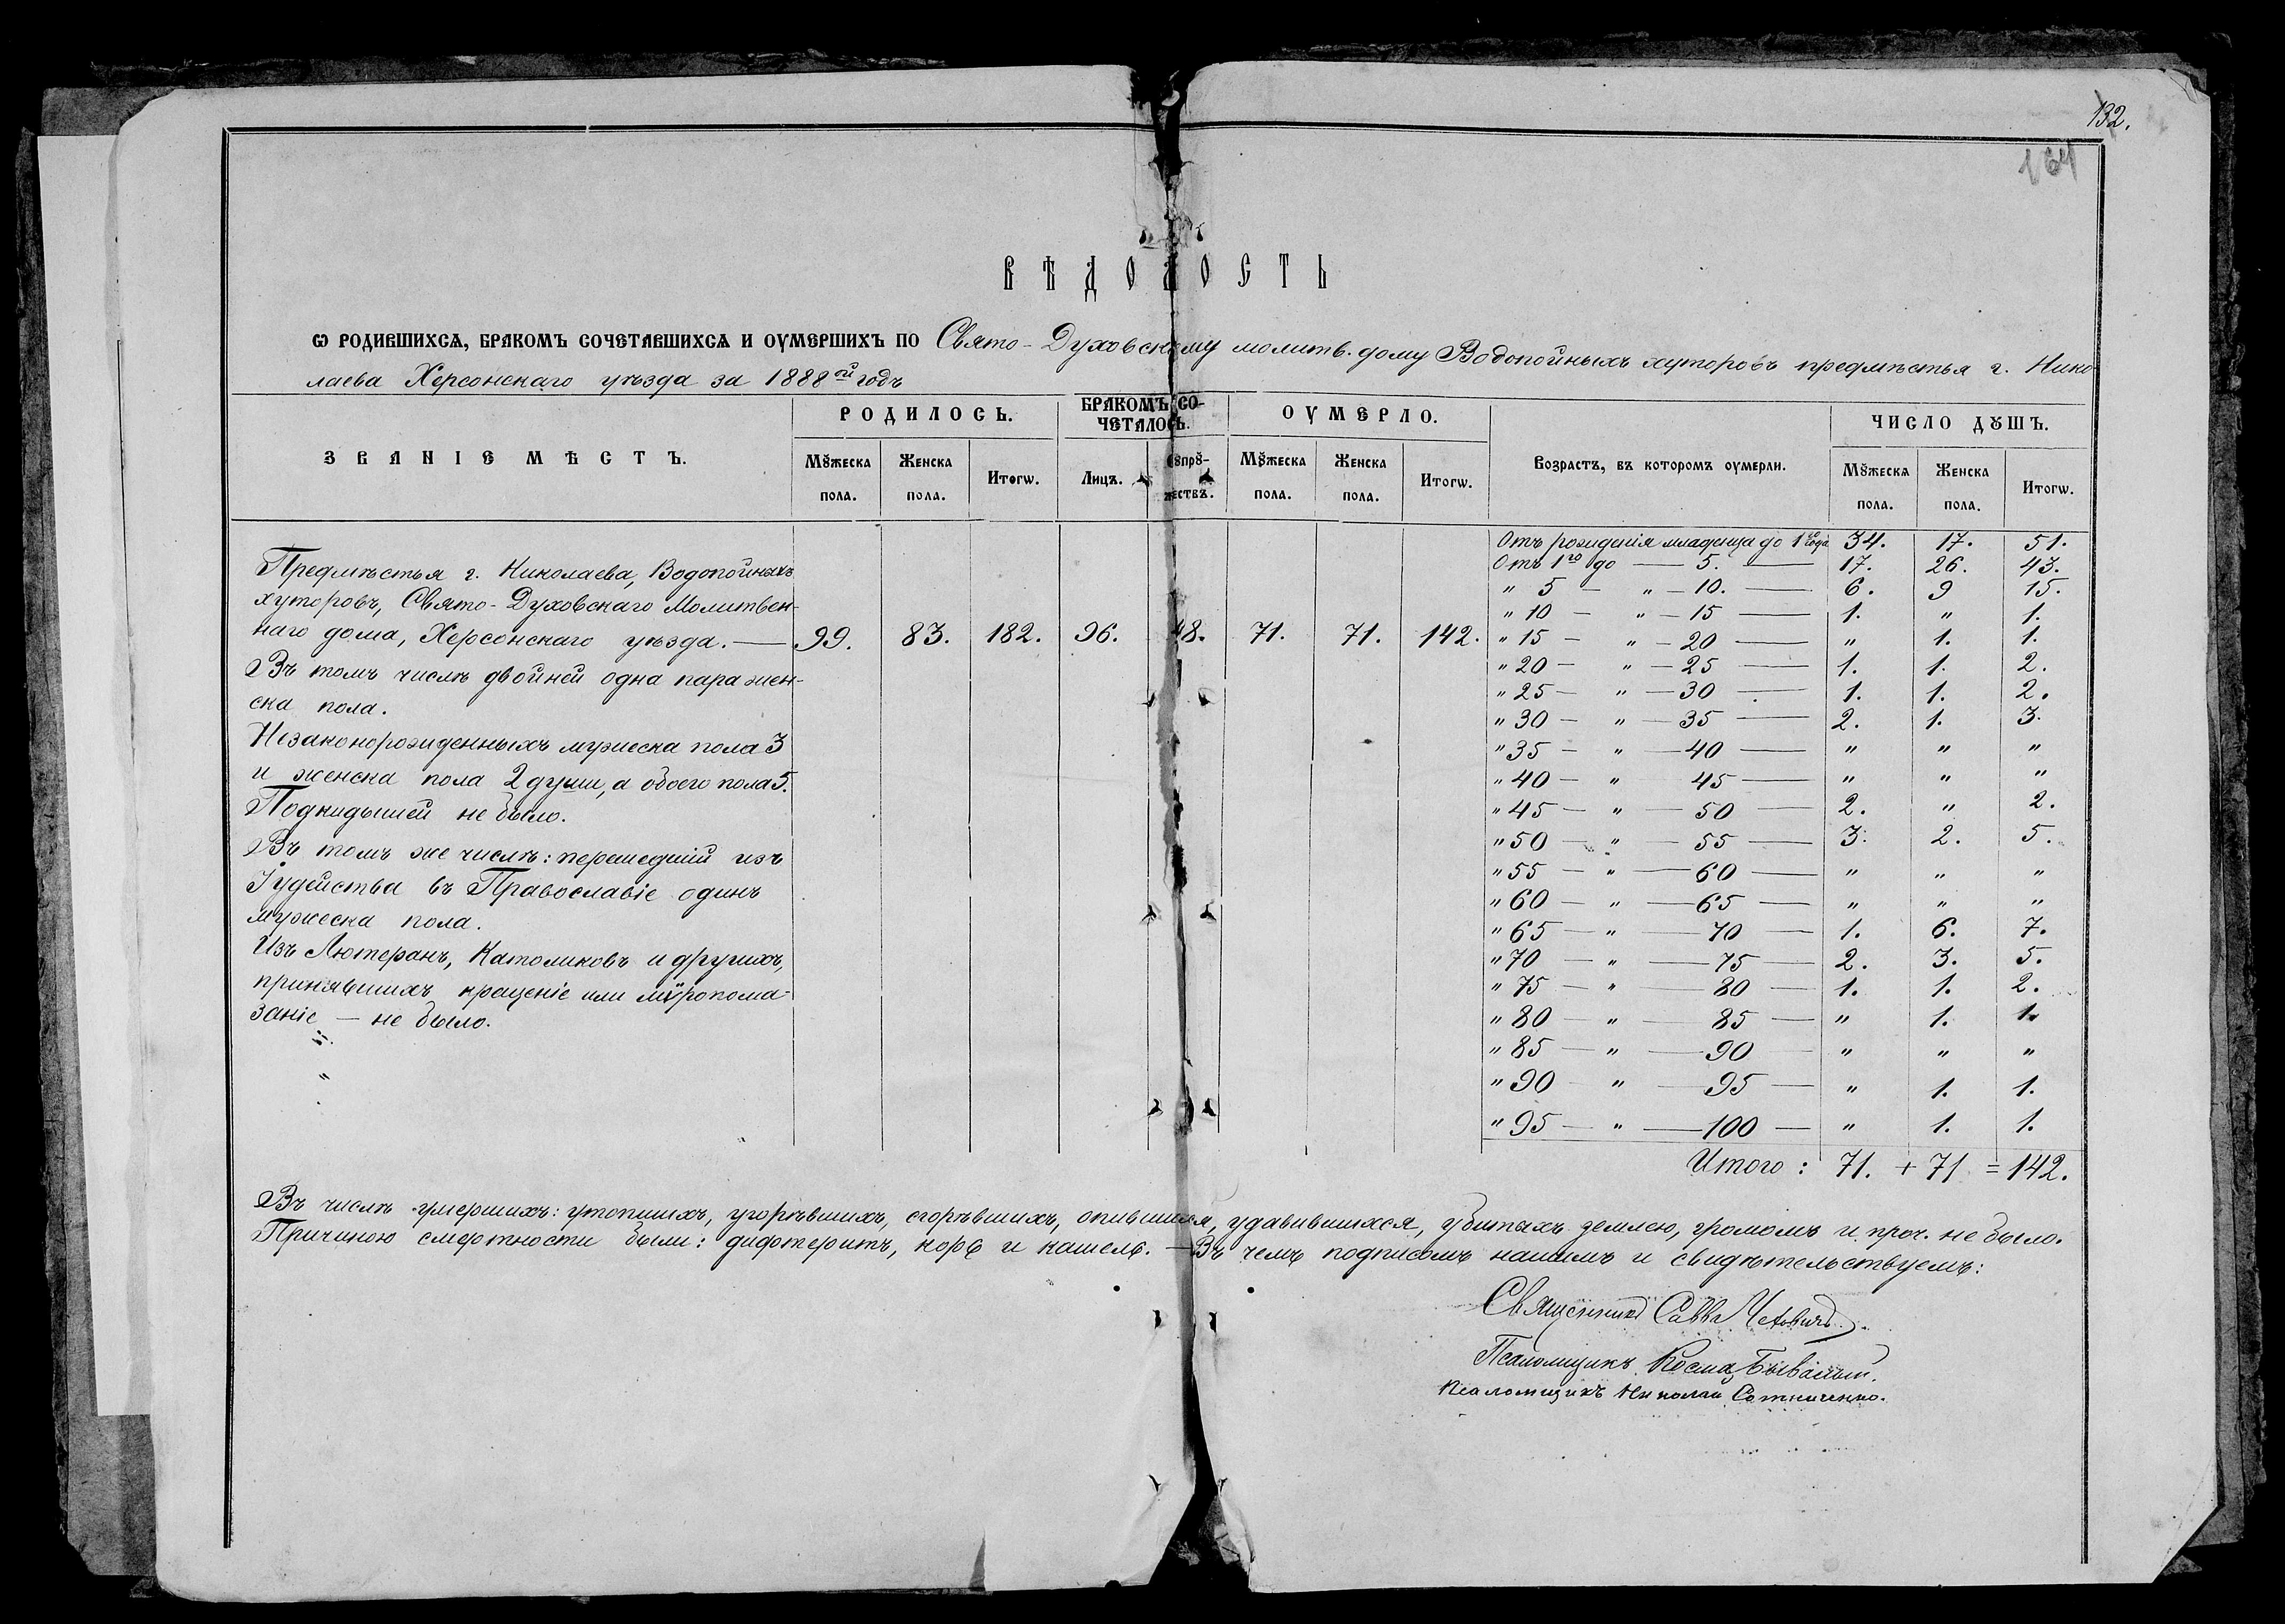 132.
164
ВѢДОМОСТЬ
Ѡ РОДИВШИХСѦ, БРАКОМЪ СОЧЕТАВШИХСѦ И ОУМЕРШИХЪ ПО Свято-Духовскому молитв. дому Водопойныхъ хуторовъ предмѣстья г. Нико
лаева Херсонскаго уѣзда за 1888ой годъ
ЗВАНІЕ МѢСТЪ. РОДИЛОСЬ. БРАКОМЪ СО-ЧЕТАЛОСЬ. ОУМЕРЛО. Возрастъ, въ которомъ оумерли. ЧИСЛО ДꙊШЪ.
Мꙋжеска пола. Женска пола. Итогѡ. Лицъ. Сꙋпрꙋ-жествъ. Мꙋжеска пола. Женска пола. Итогѡ. Мꙋжеска пола. Женска пола. Итогѡ.
Предмѣстья г. Николаева, Водопойныхъ
хуторовъ, Свято-Духовскаго Молитвен-
наго дома, Херсонскаго уѣзда. — 99. 83. 182. 96. 48. 71. 71. 142.
Въ томъ числѣ двойней одна пара жен-
ска пола.
Незаконорожденныхъ мужеска пола 3
и женска пола 2 души, а обоего пола 5.
Подкидышей не было.
Въ томъ же числѣ: перешедшій изъ
Іудейства въ Православіе одинъ
мужеска пола.
Изъ Лютеранъ, Католиковъ и другихъ,
принявшихъ крещеніе или мѵропома-
заніе — не было.
Отъ рожденія младенца до 1го года 34. 17. 51.
Отъ 1го до — 5. — 17. 26. 43.
" 5 — " — 10. — 6. 9 15.
" 10 — " — 15 — 1. " 1.
" 15 — " — 20 — " 1. 1.
" 20 — " — 25 — 1. 1. 2.
" 25 — " — 30 — 1. 1. 2.
" 30 — " — 35 — 2. 1. 3.
" 35 — " — 40 — " " "
" 40 — " 45 — " " "
" 45 — " — 50 — 2. " 2.
" 50 — " — 55 — 3. 2. 5.
" 55 — " — 60 — " " "
" 60 — " — 65 — " " "
" 65 — " — 70 — 1. 6. 7.
" 70 — " — 75 — 2. 3. 5.
" 75 — " — 80 — 1. 1. 2.
" 80 — " — 85 — " 1. 1.
" 85 — " — 90 — " " "
" 90 — " — 95 — " 1. 1.
" 95 — " — 100 — " 1. 1.
Итого: 71. + 71 = 142.
Въ числѣ умершихъ: утопшихъ, угорѣвшихъ, сгорѣвшихъ, опившихся, удавившихся, убитыхъ землею, громомъ и проч. не было.
Причиною смертности были: дифтеритъ, корь и кашель. — Въ чемъ подписомъ нашимъ и свидѣтельствуемъ:
Священникъ Савва
Псаломщикъ Косма Бывалый.
Псаломщикъ Николай Сотниченко.